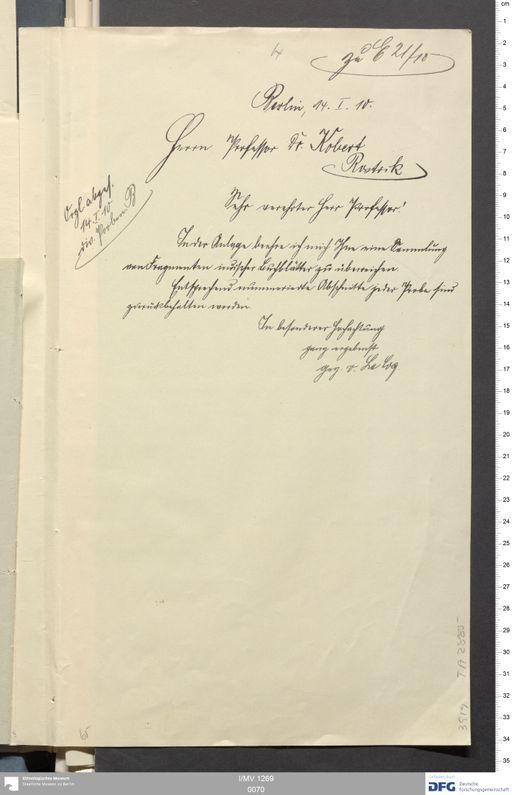 4
zu E 21/10
Berlin, 14. I. 10.
Herrn Professor Dr. Kobert
Rostock
Orgl. abges.
14. I. 10
div. Proben B
Sehr verehrter Herr Professor!
In der Anlage beehre ich mich Ihnen eine Sammlung
von Fragmenten indischer Buchblätter zu überreichen.
Entsprechend nummerierte Abschnitte jeder Probe sind
zurückbehalten worden.
In besonderer Hochachtung
ganz ergebenst
gez. v. Le Coq
I/MV 1269
0070
Ethnologisches Museum
Staatliche Museen zu Berlin
Gefördert durch
DFG Deutsche
Forschungsgemeinschaft